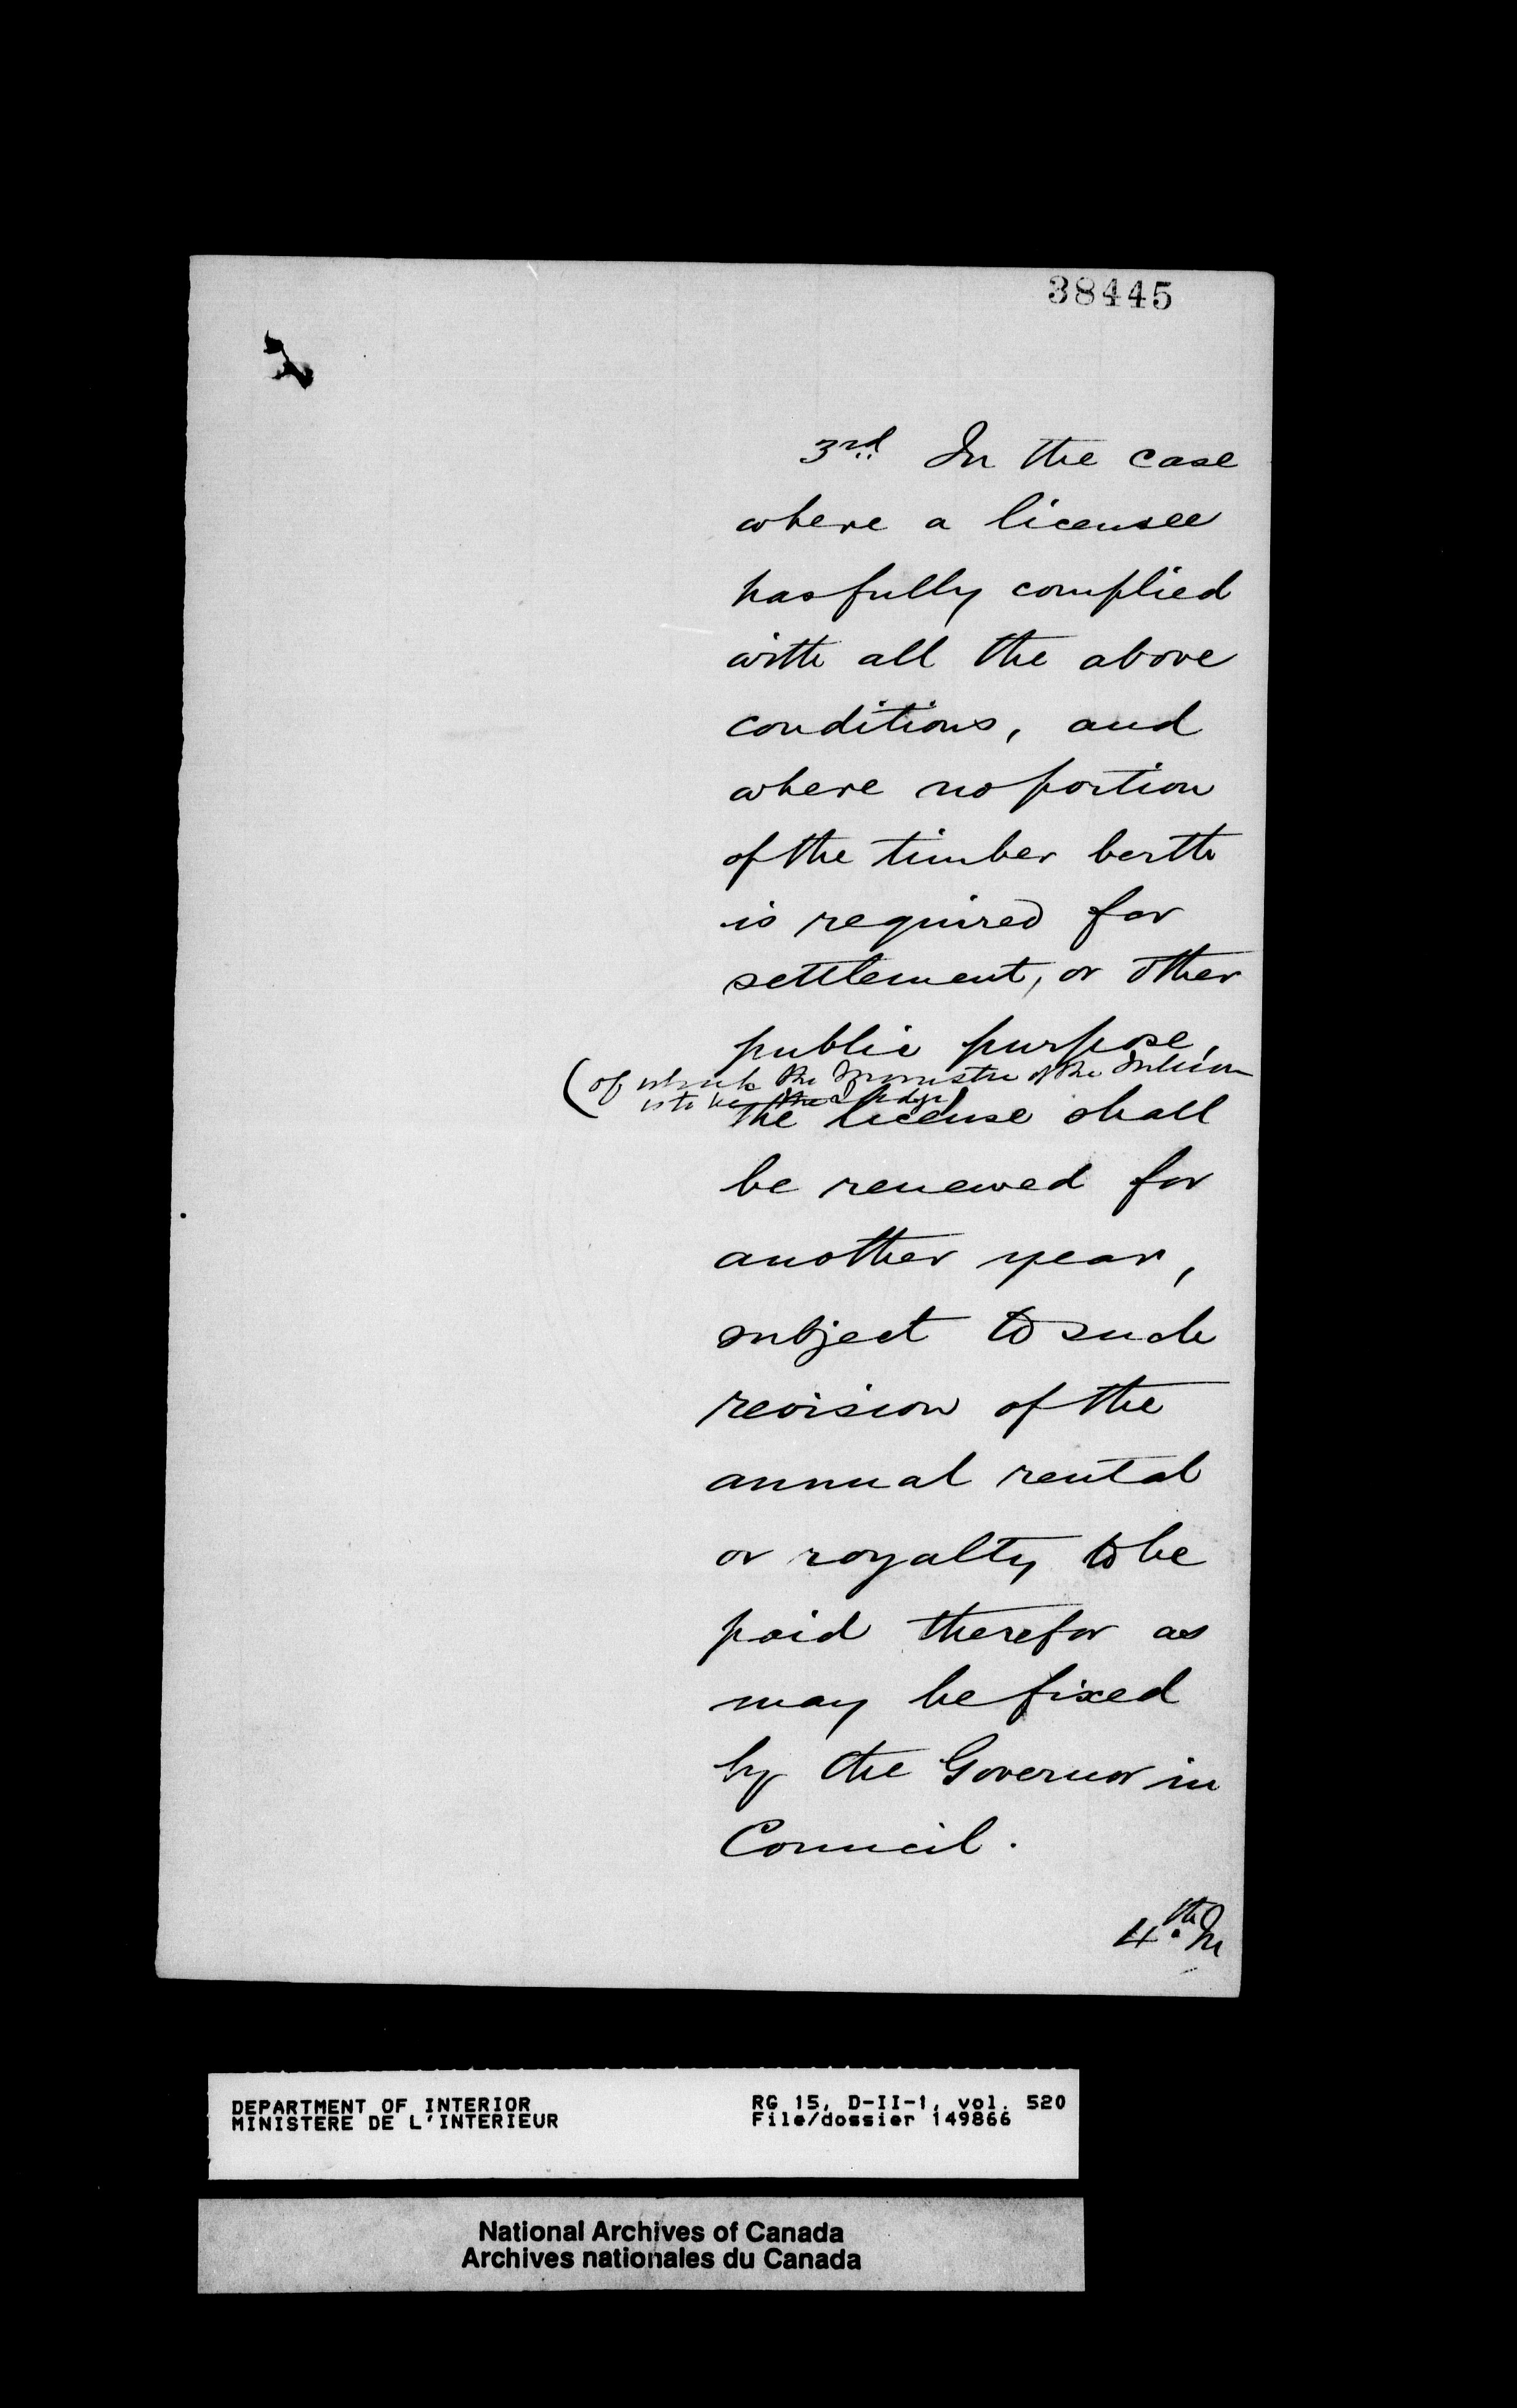 38445
3rd In the case
where a licensee
has fully complied
with all the above
conditions, and
where no portion
of the timber berth
is required for
settlement, or other
public purpose,
(of which the Minister of the Interior
is to be the judge)
the license shall
be renewed for
another year,
subject to such
revision of the
annual rental
or royalty to be
paid therefor as
may be fixed
by the Governor in
Council.
4th In
DEPARTMENT OF INTERIOR
MINISTERE DE L'INTERIEUR
RG 15, D-II-1, vol. 520
File/dossier 149866
National Archives of Canada
Archives nationales du Canada